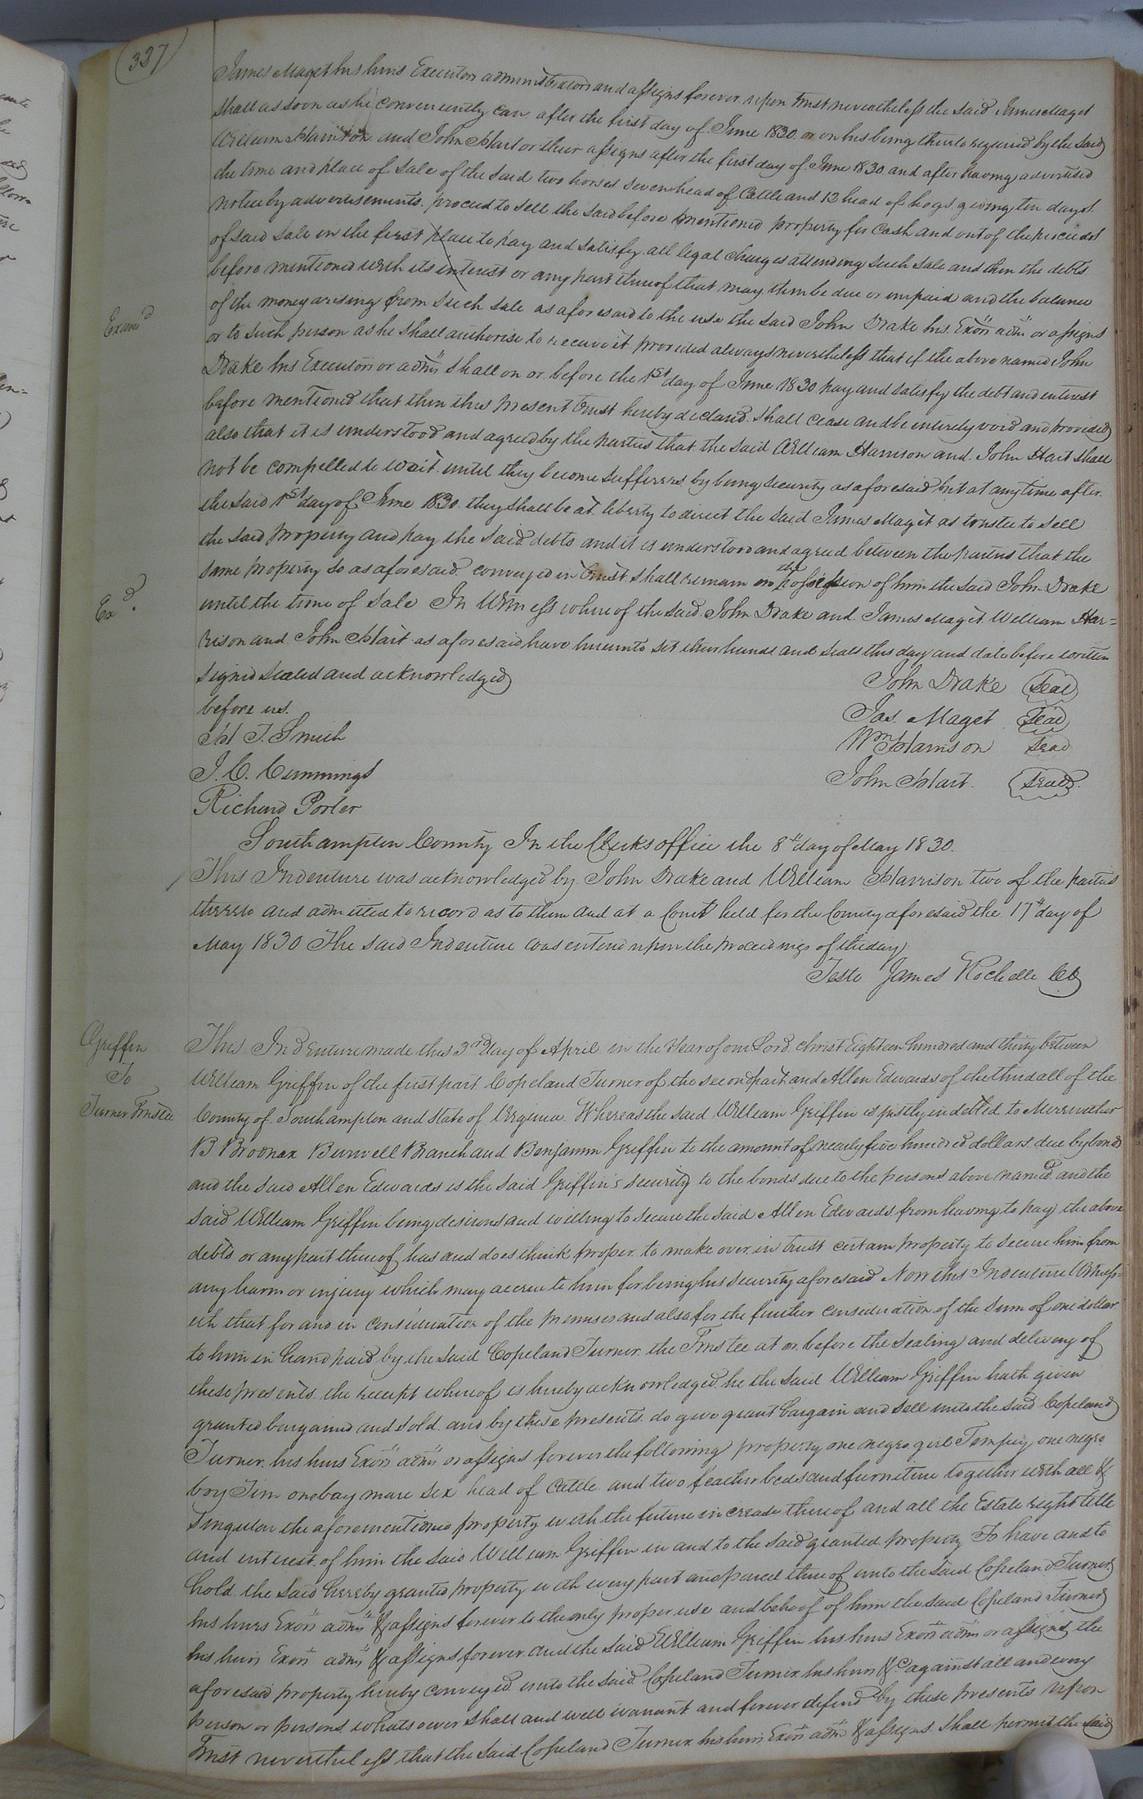 337
James Maget his heirs Executors administrators and assigns forever upon trust nevertheless the said James Maget
shall as soon as he conveniently can after the first day of June 1830 or on his being thereto required by the said
William Harrison and John Hart or their assigns after the first day of June 1830 and after having advertised
the time and place of sale of the said two horses seven head of Cattle and 13 head of hogs giving ten days
notice by advertisements proceed to sell the said before mentioned property for Cash and out of the proceeds
of said sale in the first place to pay and satisfy all legal charges attending such sale and then the debts
before mentioned with its interest or any part thereof that may then be due or unpaid and the balance
of the money arising from such sale as aforesaid to the use the said John Drake his Exors admrs or assigns
Exand
or to such person as he shall authorise to receive it provided always nevertheless that if the above named John
Drake his Executors or admrs shall on or before the 1st day of June 1830 pay and satisfy the debt and interest
before mentioned that then this present trust hereby declared shall cease and be entirely void and provided
also that it is understood and agreed by the parties that the said William Harrison and John Hart shall
not be compelled to wait until they become sufferers by being security as aforesaid but at any time after
the said 1st day of June 1830 they shall be at liberty to direct the said James Maget as trustee to sell
the said property and pay the said debts and it is understood and agreed between the parties that the
same property so as aforesaid conveyed in trust shall remain in the possession of him the said John Drake
Exd.
until the time of sale In Witness whereof the said John Drake and James Maget William Har=
rison and John Hart as aforesaid have hereunto set their hands and seals this day and date before written
Signed Sealed and acknowledged
before us.
John Drake Seal
Jas. Maget Seal
T. Smith
Wm Harrison Seal
J. C. Cummings
John Hart. Seal
Richard Porter
Southampton County In the Clerks office the 8th day of May 1830.
This Indenture was acknowledged by John Drake and William Harrison two of the parties
thereto and admitted to record as to them and at a Court held for the County aforesaid the 17th day of
May 1830 The said Indenture was entered upon the proceedings of the day
Teste James Rochelle CC
Griffin
To
Turner Trustee
This Indenture made this 3rd day of April in the Year of our Lord Christ Eighteen hundred and thirty between
William Griffin of the first part Copeland Turner of the second part and Allen Edwards of the third all of the
County of Southampton and State of Virginia. Whereas the said William Griffin is justly indebted to Merewether
B Broonax Burwell Branch and Benjamin Griffin to the amount of nearly five hundred dollars due by bond
and the said Allen Edwards is the said Griffin's security to the bonds due to the persons above named and the
said William Griffin being desirous and willing to secure the said Allen Edwards from having to pay the above
debts or any part thereof has and does think proper to make over in trust certain property to secure him from
any harm or injury which may accrue to him for being his security aforesaid Now this Indenture Witness
eth that for and in consideration of the premises and also for the further consideration of the sum of one dollar
to him in hand paid by the said Copeland Turner the Trustee at or before the sealing and delivery of
these presents the receipt whereof is hereby acknowledged he the said William Griffin hath given
granted bargained and sold and by these presents do give grant bargain and sell unto the said Copeland
Turner his heirs Exors admrs or assigns forever the following property one negro girl Tempey one negro
boy Jim one bay mare six head of Cattle and two feather beds and furneture together with all &
singular the aforementioned property with the future increase thereof and all the Estate right title
and interest of him the said William Griffin in and to the said granted property To have and to
hold the said hereby granted property with every part and parcel thereof unto the said Copeland Turner
his heirs Exors admrs & assigns forever to the only proper use and behoof of him the said Copeland Turner
his heirs Exors admrs & assigns forever and the said William Griffin his heirs Exors admrs or assigns the
aforesaid property hereby conveyed unto the said Copeland Turner his heirs &c against all and every
person or persons whatsoever shall and will warrant and forever defend by these presents Upon
Trust nevertheless that the said Copeland Turner his heirs Exors admrs & assigns shall permit the said